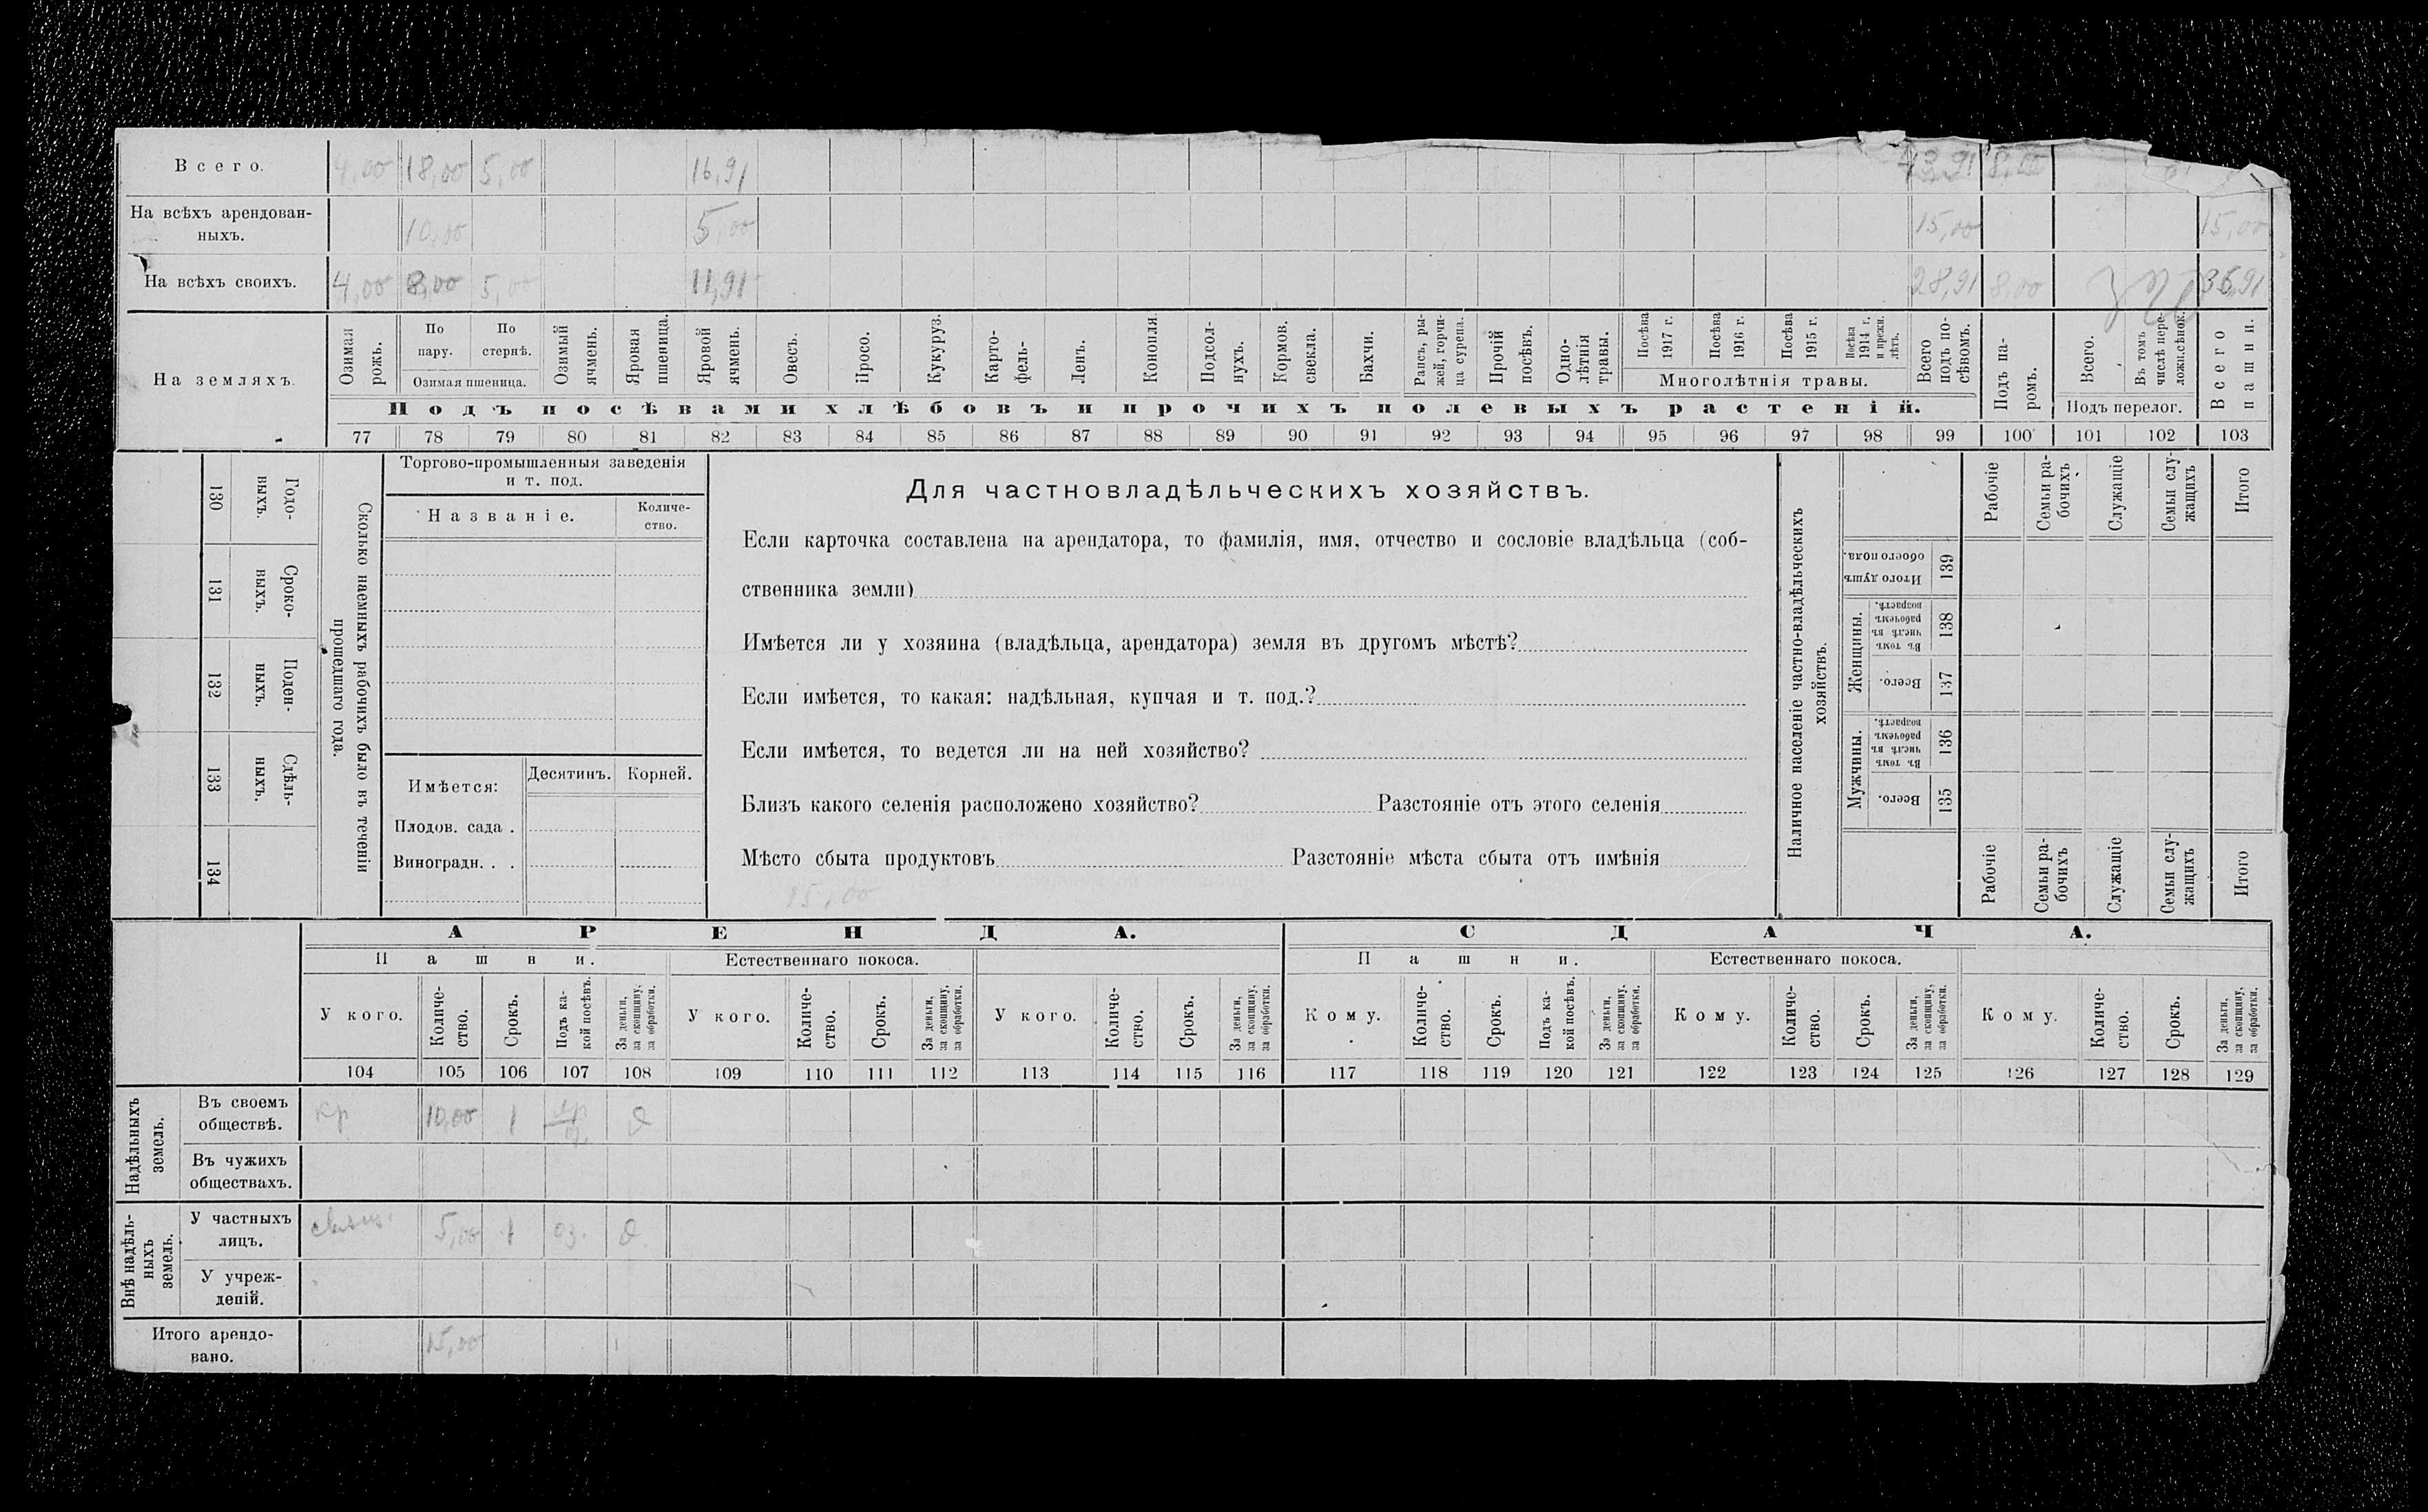 Всего. 4,00 18,00 5,00 16,91 43,91 8,00
На всѣхъ арендован-
ныхъ. 10,00 5,00 15,00 15,00
На всѣхъ своихъ. 4,00 8,00 5,00 11,91 28,91 8,00 36,91
На земляхъ.
Озимая
рожь.
По
пару.
По
стернѣ.
Озимая пшеница.
Озимый
ячмень.
Яровая
пшеница.
Яровой
ячмень.
Овесъ.
Просо.
Кукуруз.
Карто-
фель.
Ленъ.
Конопля.
Подсол-
нухъ.
Кормов.
свекла.
Бахчи.
Рапсъ, ры-
жей, горчи-
ца сурепа.
Прочій
посѣвъ.
Одно-
лѣтнія
травы.
Посѣва
1917 г.
Посѣва
1916 г.
Посѣва
1915 г.
Посѣва
1914 г.
и прежн.
лѣтъ.
Многолѣтнія травы.
Всего
подъ по-
сѣвомъ.
Подъ па-
ромъ.
Всего.
Въ томъ
числѣ пере-
ложн.сѣнок.
Подъ перелог.
Всего
пашни.
Подъ посѣвами хлѣбовъ и прочихъ полевыхъ растеній.
77 78 79 80 81 82 83 84 85 86 87 88 89 90 91 92 93 94 95 96 97 98 99 100 101 102 103
130
Годо-
выхъ.
131
Сроко-
выхъ.
132
Поден-
ныхъ.
133
Сдѣль-
ныхъ.
134
Сколько наемныхъ рабочихъ было въ теченіи
прошедшаго года.
Торгово-промышленныя заведенія
и т. под.
Названіе.
Количе-
ство.
Имѣется:
Десятинъ. Корней.
Плодов. сада .
Виноградн. . .
Для частновладѣльческихъ хозяйствъ.
Если карточка составлена на арендатора, то фамилія, имя, отчество и сословіе владѣльца (соб-
ственника земли)
Имѣется ли у хозяина (владѣльца, арендатора) земля въ другомъ мѣстѣ?
Если имѣется, то какая: надѣльная, купчая и т. под.?
Если имѣется, то ведется ли на ней хозяйство?
Близъ какого селенія расположено хозяйство? Разстояніе отъ этого селенія
Мѣсто сбыта продуктовъ Разстояніе мѣста сбыта отъ имѣнія
15,00
Наличное населеніе частно-владѣльческихъ
хозяйствъ.
Рабочіе
Семьи ра-
бочихъ
Служащіе
Семьи слу-
жащихъ
Итого
Итого душъ
обоего пола.
139
Женщины.
Въ томъ
числѣ въ
рабочемъ
возрастѣ.
138
Всего.
137
Мужчины.
Въ томъ
числѣ въ
рабочемъ
возрастѣ.
136
Всего.
135
Рабочіе
Семьи ра-
бочихъ
Служащіе
Семьи слу-
жащихъ
Итого
АРЕНДА. СДАЧА.
Пашни. Естественнаго покоса. Пашни. Естественнаго покоса.
У кого.
Количе-
ство.
Срокъ.
Подъ ка-
кой посѣвъ.
За деньги,
за скопщину,
за обработки.
У кого.
Количе-
ство.
Срокъ.
За деньги,
за скопщину,
за обработки.
У кого.
Количе-
ство.
Срокъ.
За деньги,
за скопщину,
за обработки.
Кому.
Количе-
ство.
Срокъ.
Подъ ка-
кой посѣвъ.
За деньги,
за скопщину,
за обработки.
Кому.
Количе-
ство.
Срокъ.
За деньги,
за скопщину,
за обработки.
Кому.
Количе-
ство.
Срокъ.
За деньги,
за скопщину,
за обработки.
104 105 106 107 108 109 110 111 112 113 114 115 116 117 118 119 120 121 122 123 124 125 126 127 128 129
Надѣльныхъ
земель.
Въ своемъ
обществѣ. кр 10,00 1 д
Въ чужихъ
обществахъ.
Внѣ надѣль-
ныхъ
земель.
У частныхъ
лицъ. 5,00 1 оз. д
У учреж-
деній.
Итого арендо-
вано. 15,00